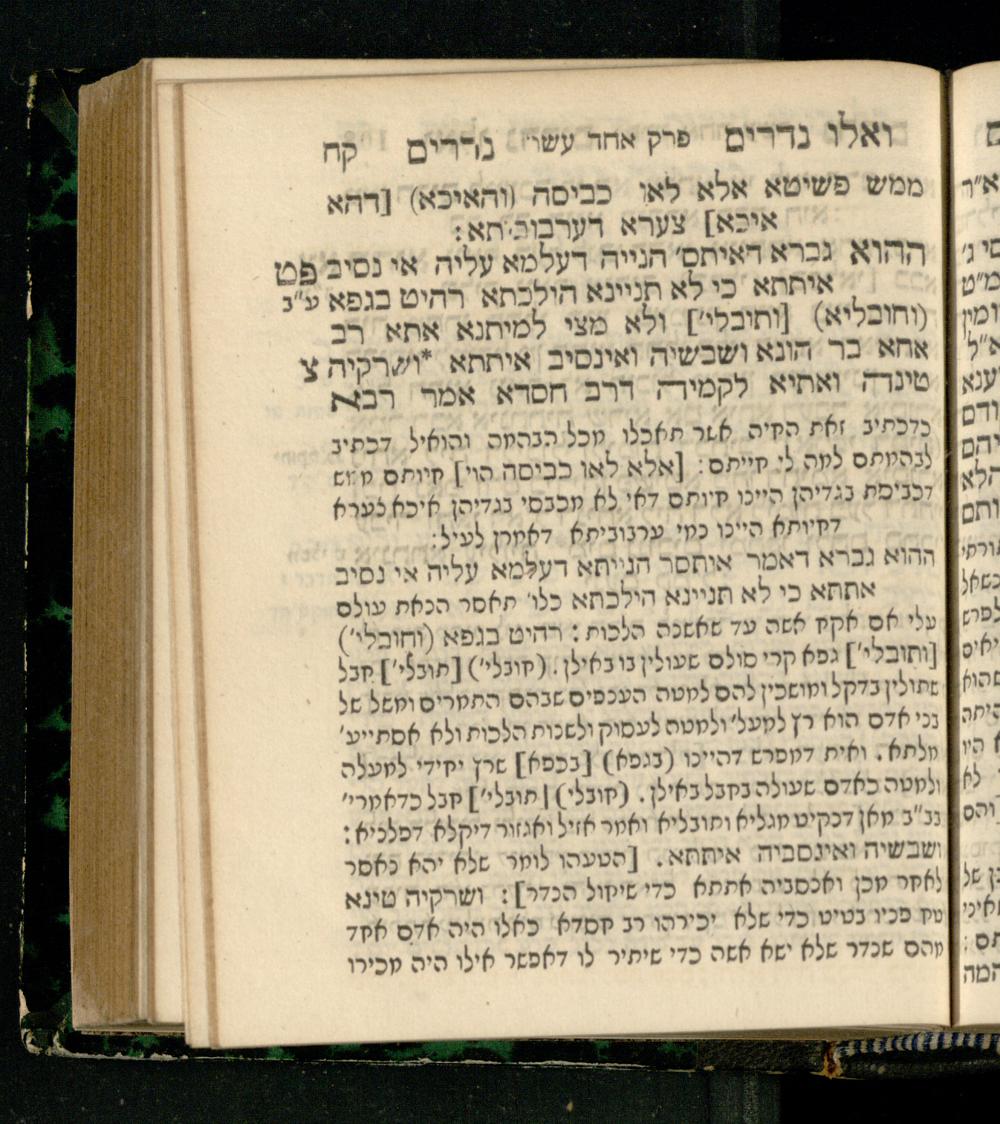 ואלו נדרים פרק אחד עשר נדרים קח
ממש פשיטא אלא לאו כביסה (והאיכא) [דהא
איכא] צערא דערבוביתא:
ההוא גברא דאיתס׳ הנייה דעלמא עליה אי נסיב פט
איתתא כי לא תניינא הילכתא רהיט בגפא ע״ב
(וחובליא) [ותובלי׳] ולא מצי למיתנא אתא רב
אחא בר הונא ושבשיה ואינסיב איתתא *ושרקיה צ
טינדה ואתיא לקמיה דרב חסדא אמר רבא
כדכתיב זאת החיה אשר תאכלו מכל הבהמה והואיל דכתיב
לבהמתם למה לי חייתם: [אלא לאו כביסה הוי] חיותם ממש
דכביסת בגדיהן היינו חיותם דאי לא מכבסי בגדיהן איכא צערא
דחיותא היינו כמי ערבוביתא דאמרן לעיל:
ההוא גברא דאמר איתסר הנייתא דעלמא עליה אי נסיב
אתתא כי לא תניינא הילכתא כלו׳ תאסר הנאת עולם
עלי אם אקח אשה עד שאשנה הלכות: רהיט בגפא (וחובלי׳)
[ותובלי׳] גפא קרי סולם שעולין בו באילן. (חובלי׳) [תובלי׳] חבל
שתולין בדקל ומושכין להם למטה העכפים שבהם התמרים ומשל של
בני אדם הוא רץ למעל׳ ולמטה לעסוק ולשנות הלכות ולא אסתייע׳
מלתא. ואית דמפרש דהיינו (בגפא) [בכפא] שרץ יחידי למעלה
ולמטה כאדם שעולה בחבל באילן. (חובלי) [תובלי׳] חבל כדאמרי׳
בב״ב מאן דנקיט מגליא ותובליא ואמר אזיל ואגזור דיקלא דפלניא:
ושבשיה ואינסביה איתתא. [הטעהו לומר שלא יהא נאסר
לאחר מכן ואנסביה אתתא כדי שיקול הנדר]: ושרקיה טינא
טח פניו בטיט כדי שלא יכירהו רב חסדא כאלו היה אדם אחד
מהם שנדר שלא ישא אשה כדי שיתיר לו דאפשר אילו היה מכירו